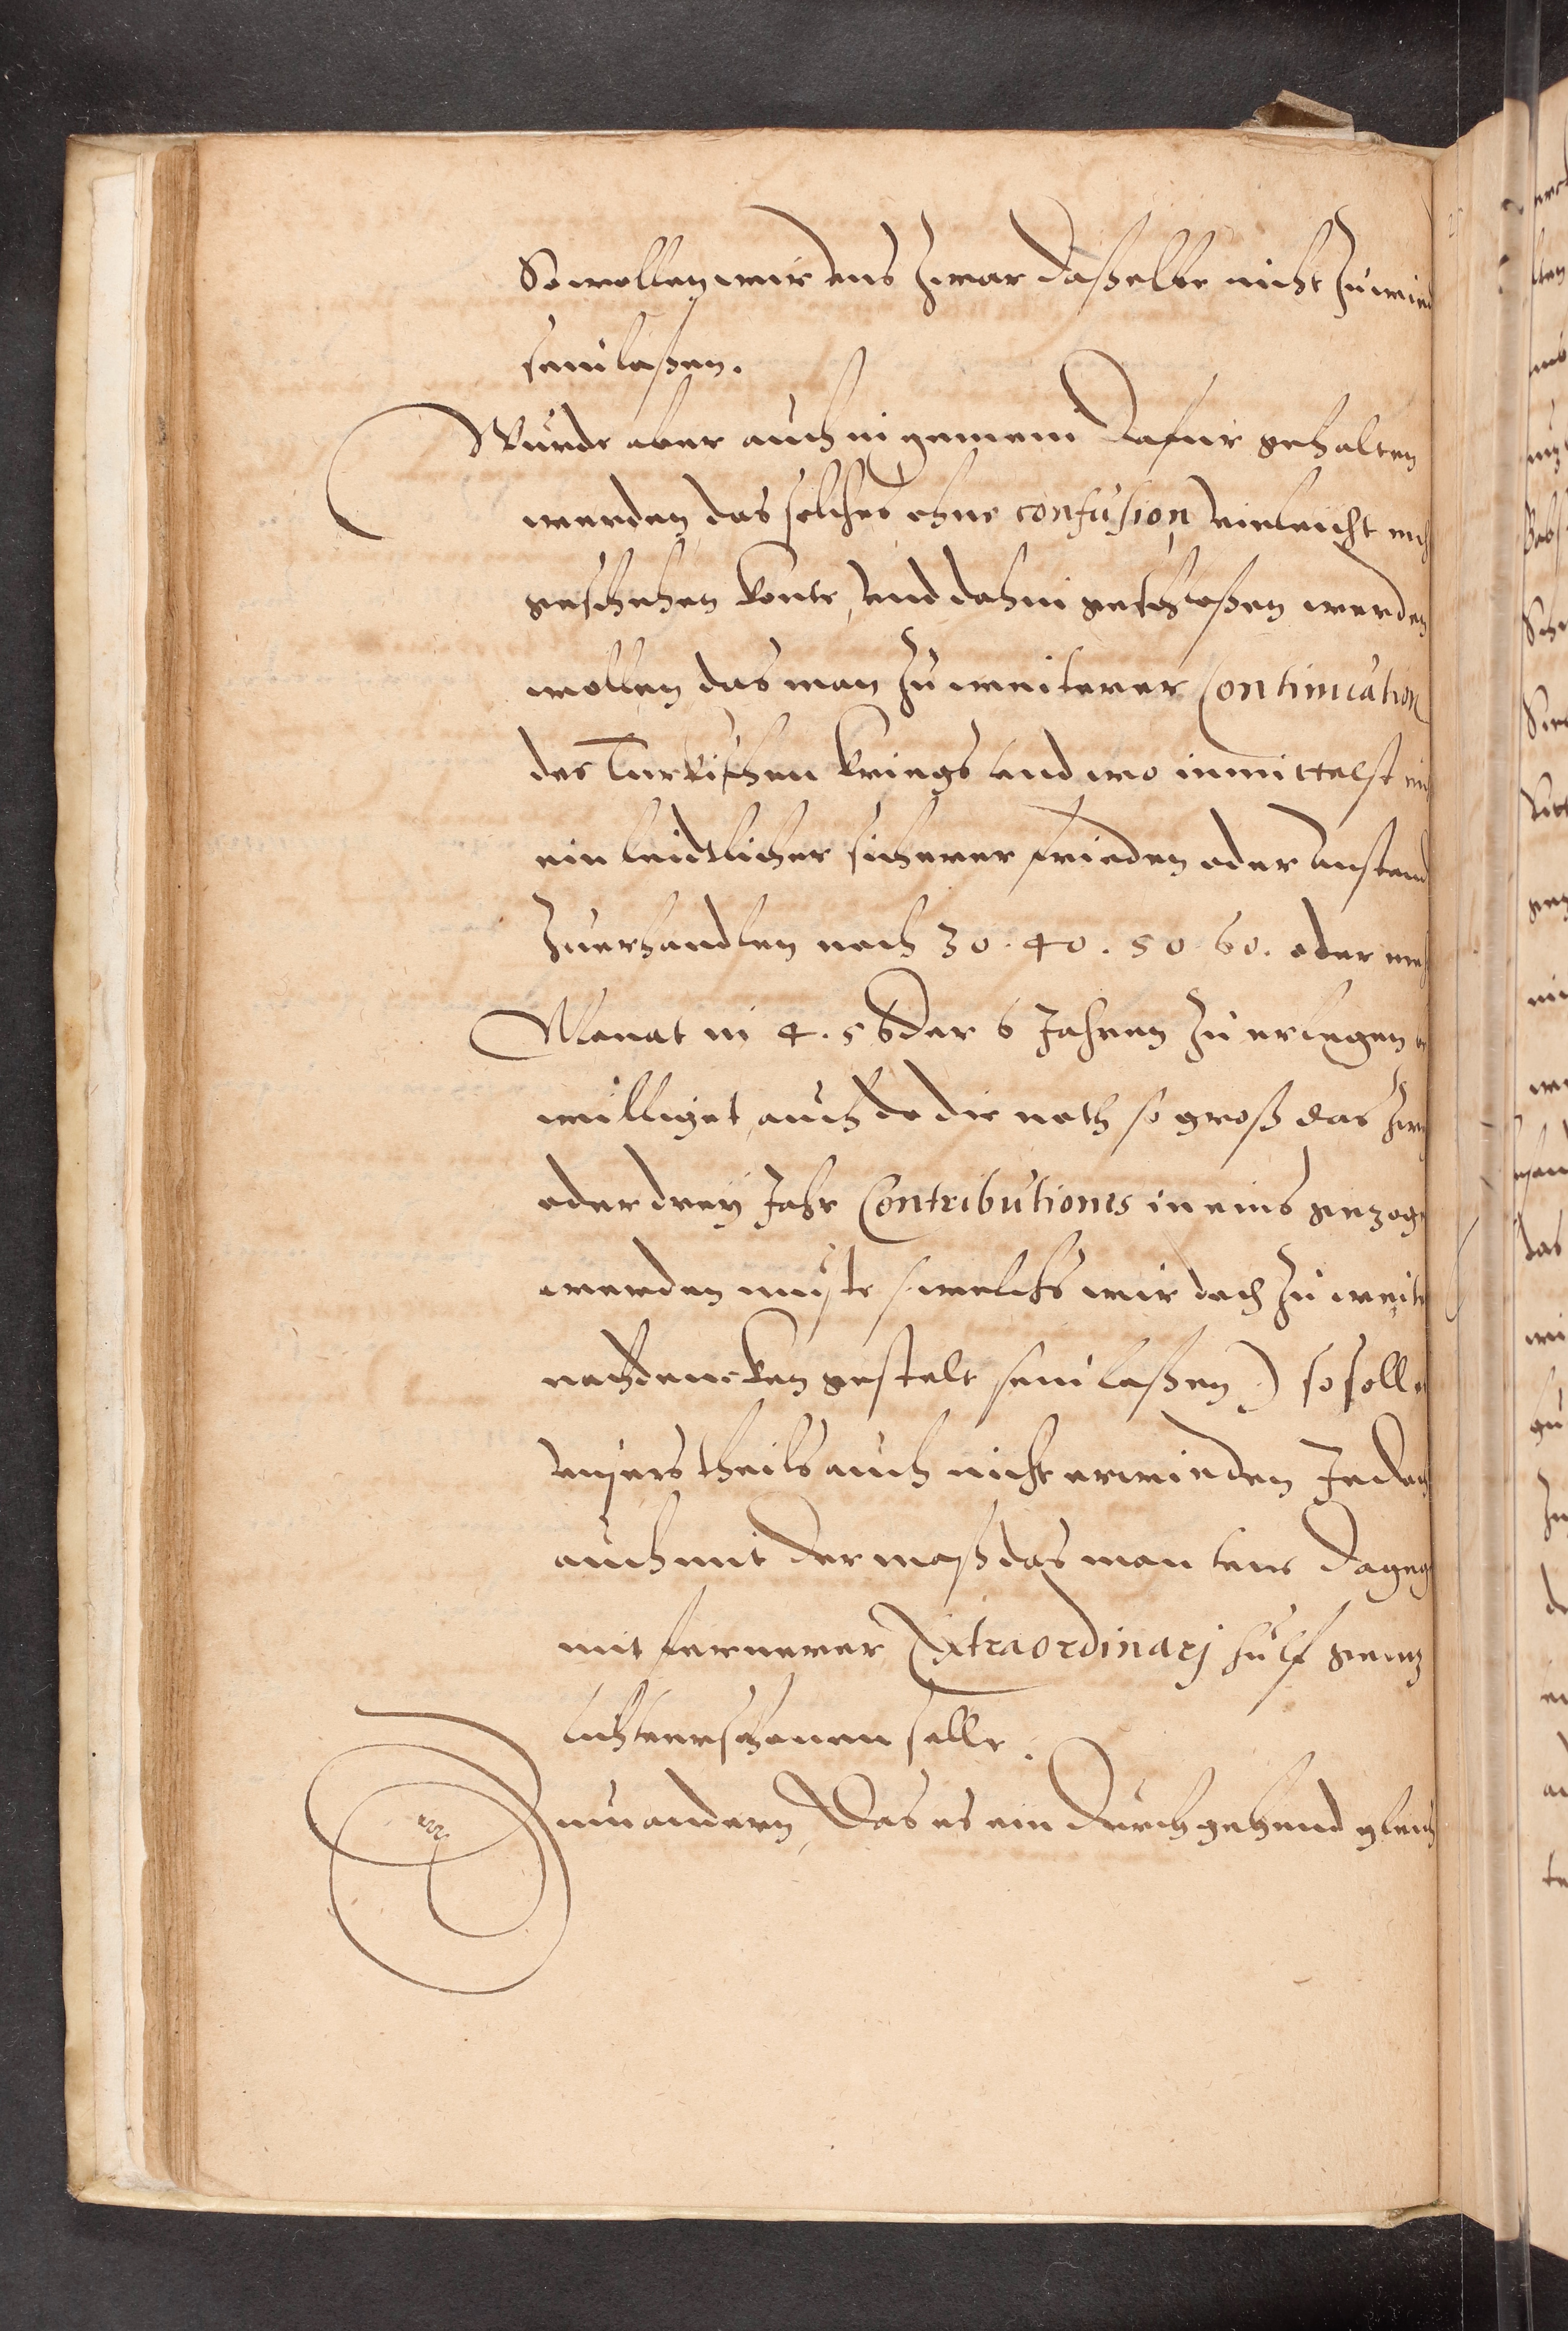 So wollen wir uns zwar daßelbe nicht zuwied
sein laßen.
Wurde aber auch in gemein dafur gehalten
werden, das solches ohne confusion vieleicht nich
geschehen konte, und dahin geschloßen werden
wollen das man zu weiterer Continuation
des Turkischen kriegs und wo inmittelst nit
ein leidtlicher sicherer frieden oder anstand
zuerhandlen noch 30. 40. 50. 60. oder meh
Monat in 4. 5 oder 6 Jahren zu erlegen
williget, auch do die noth so groß das zwey
oder drey Jahr Contributiones in eins gezoge
werden muste (welchs wir doch zu weite
nachdencken gestelt sein laßen) so soll
unsers theils auch nicht erwinden Jedoch
auch mit der maß das man uns dageg
mit fernerer Extraordinarj hulf gentz
lich verschonen solle.
Zum andern, das es ein durchgehend gleich